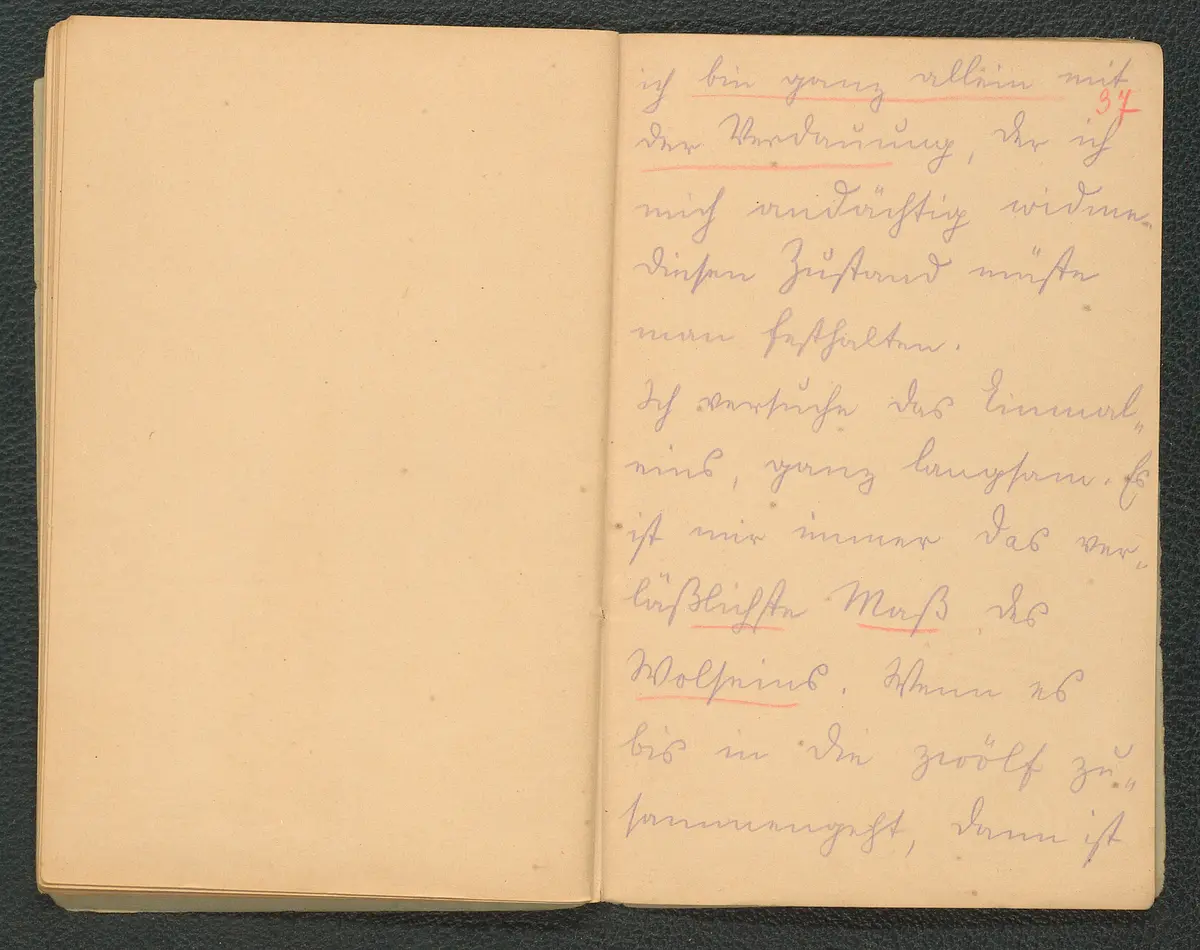 ich bin ganz allein mit
37
der Verdauung, der ich
mich andächtig widme.
diesen Zustand müste
man festhalten.
Ich versuche das Einmal„
eins, ganz langsam. Es
ist mir immer das ver„
läßlichste Maß des
Wolseins. Wenn es
bis in die zwölf zu„
sammengeht, dann ist